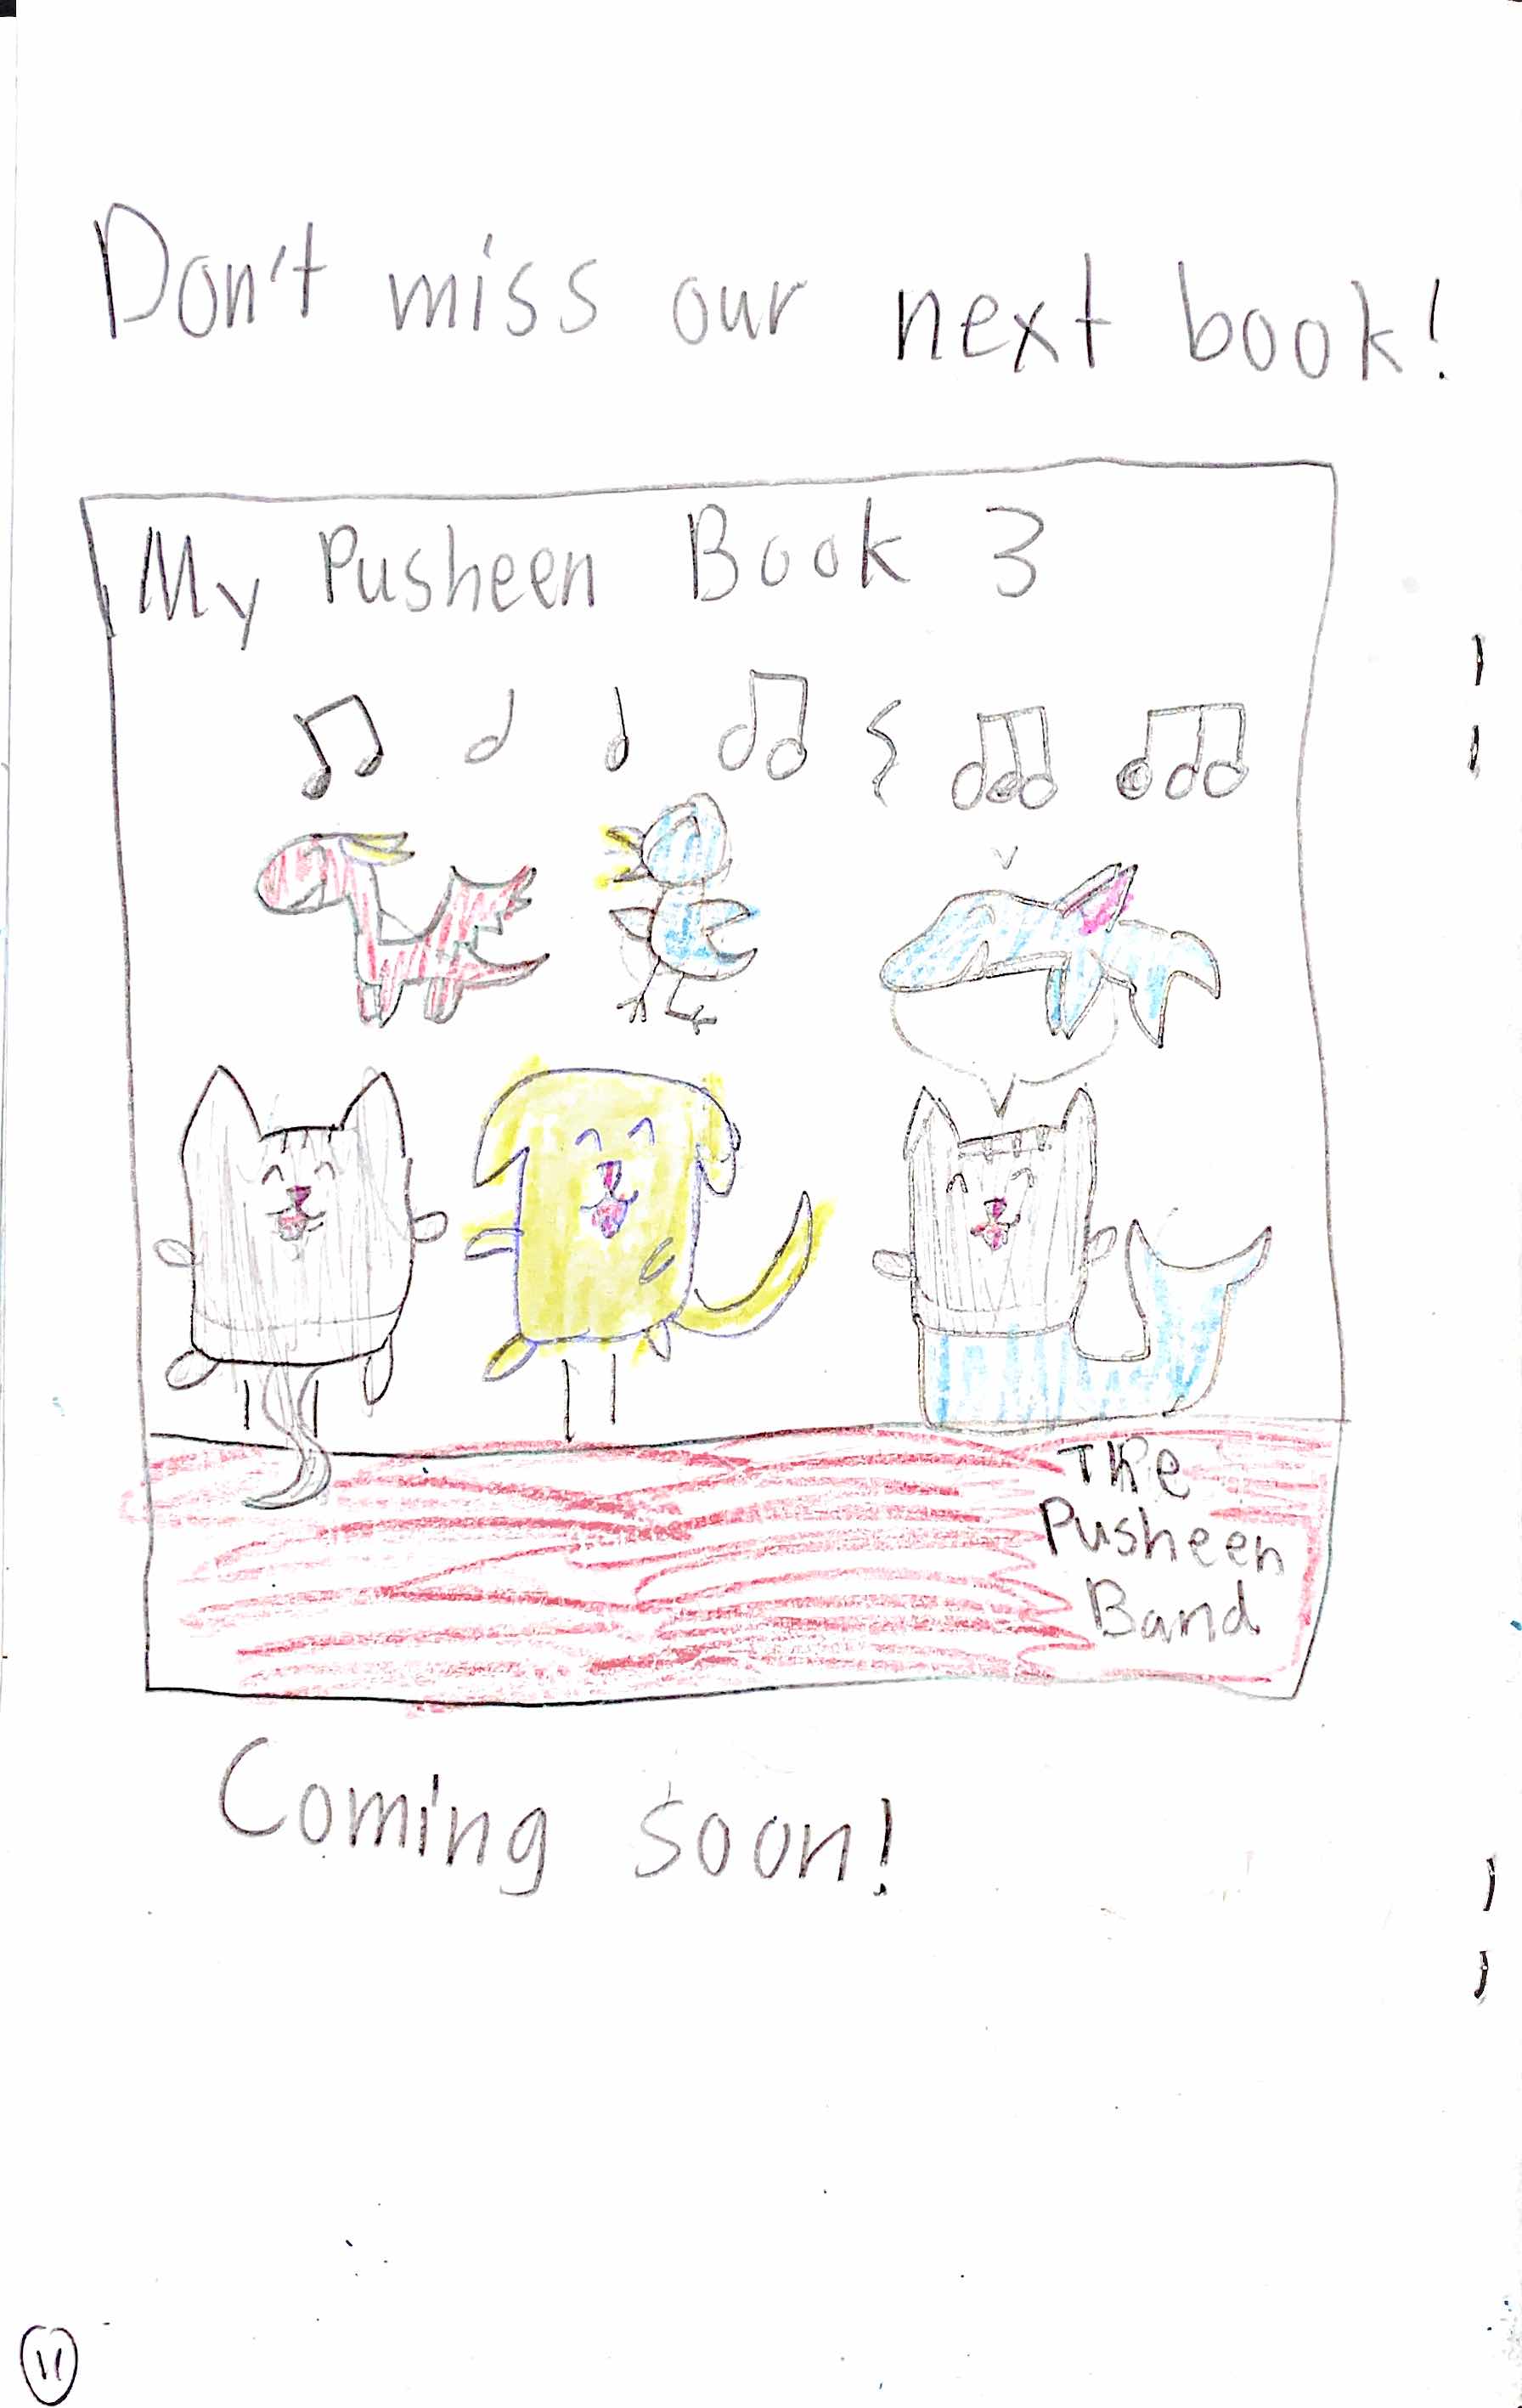 Don't miss our next book!
My Pusheen Book 3
The
Pusheen
Band
Coming soon!
11